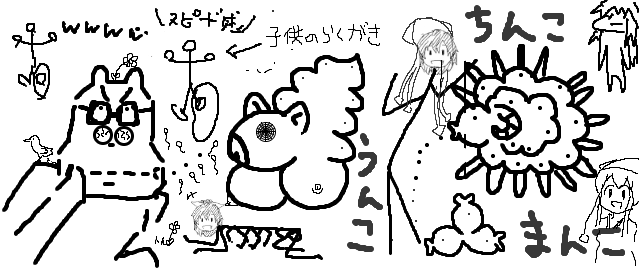 wwww
スピード感
子供のらくがき
ちんこ
うんこ
まんこ